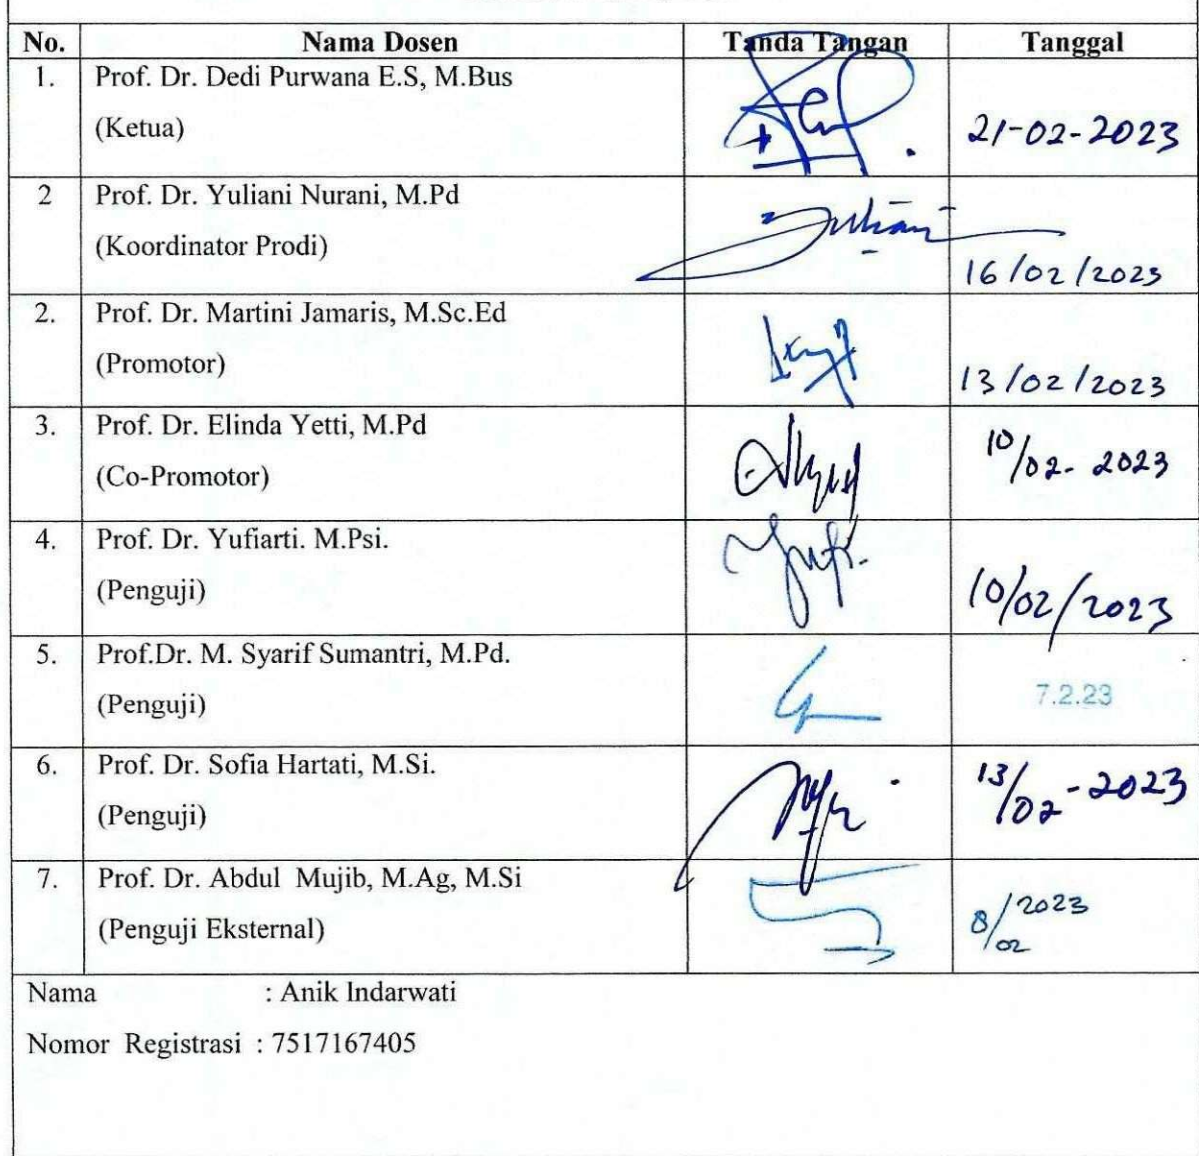 No. Nama Dosen Tanda Tangan Tanggal
1. Prof. Dr. Dedi Purwana E.S, M.Bus
(Ketua) 21-02-2023
2 Prof. Dr. Yuliani Nurani, M.Pd
(Koordinator Prodi) Yuliani
16/02/2023
2. Prof. Dr. Martini Jamaris, M.Sc.Ed
(Promotor) 13/02/2023
3. Prof. Dr. Elinda Yetti, M.Pd
(Co-Promotor) 10/02-2023
4. Prof. Dr. Yufiarti. M.Psi.
(Penguji) 10/02/2023
5. Prof.Dr. M. Syarif Sumantri, M.Pd.
(Penguji) 7.2.23
6. Prof. Dr. Sofia Hartati, M.Si.
(Penguji) 13/02-2023
7. Prof. Dr. Abdul Mujib, M.Ag, M.Si
(Penguji Eksternal) 8/02 2023
Nama : Anik Indarwati
Nomor Registrasi : 7517167405